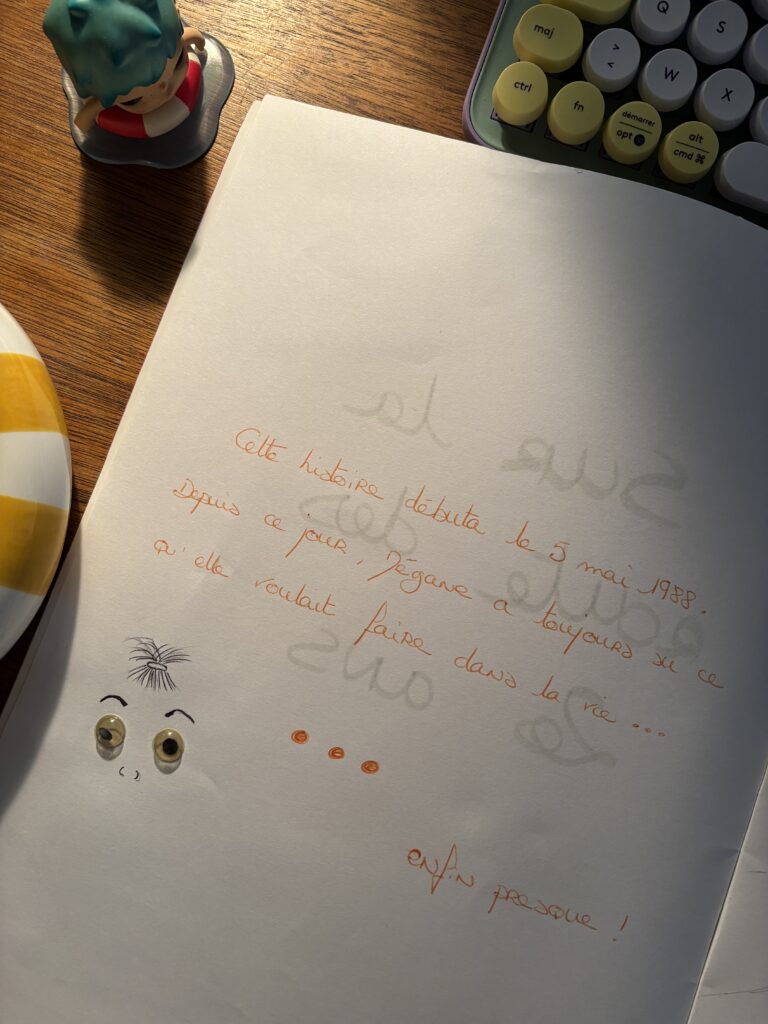 maj
Q
S
>
<
W
X
ctrl
fn
démarrer
opt
alt
cmd ⌘
Cette histoire débuta le 5 mai 1988.
Depuis ce jour, Mégane a toujours su ce
qu'elle voulait faire dans la vie ...
...
enfin presque !
Sur la
route des
20 ans